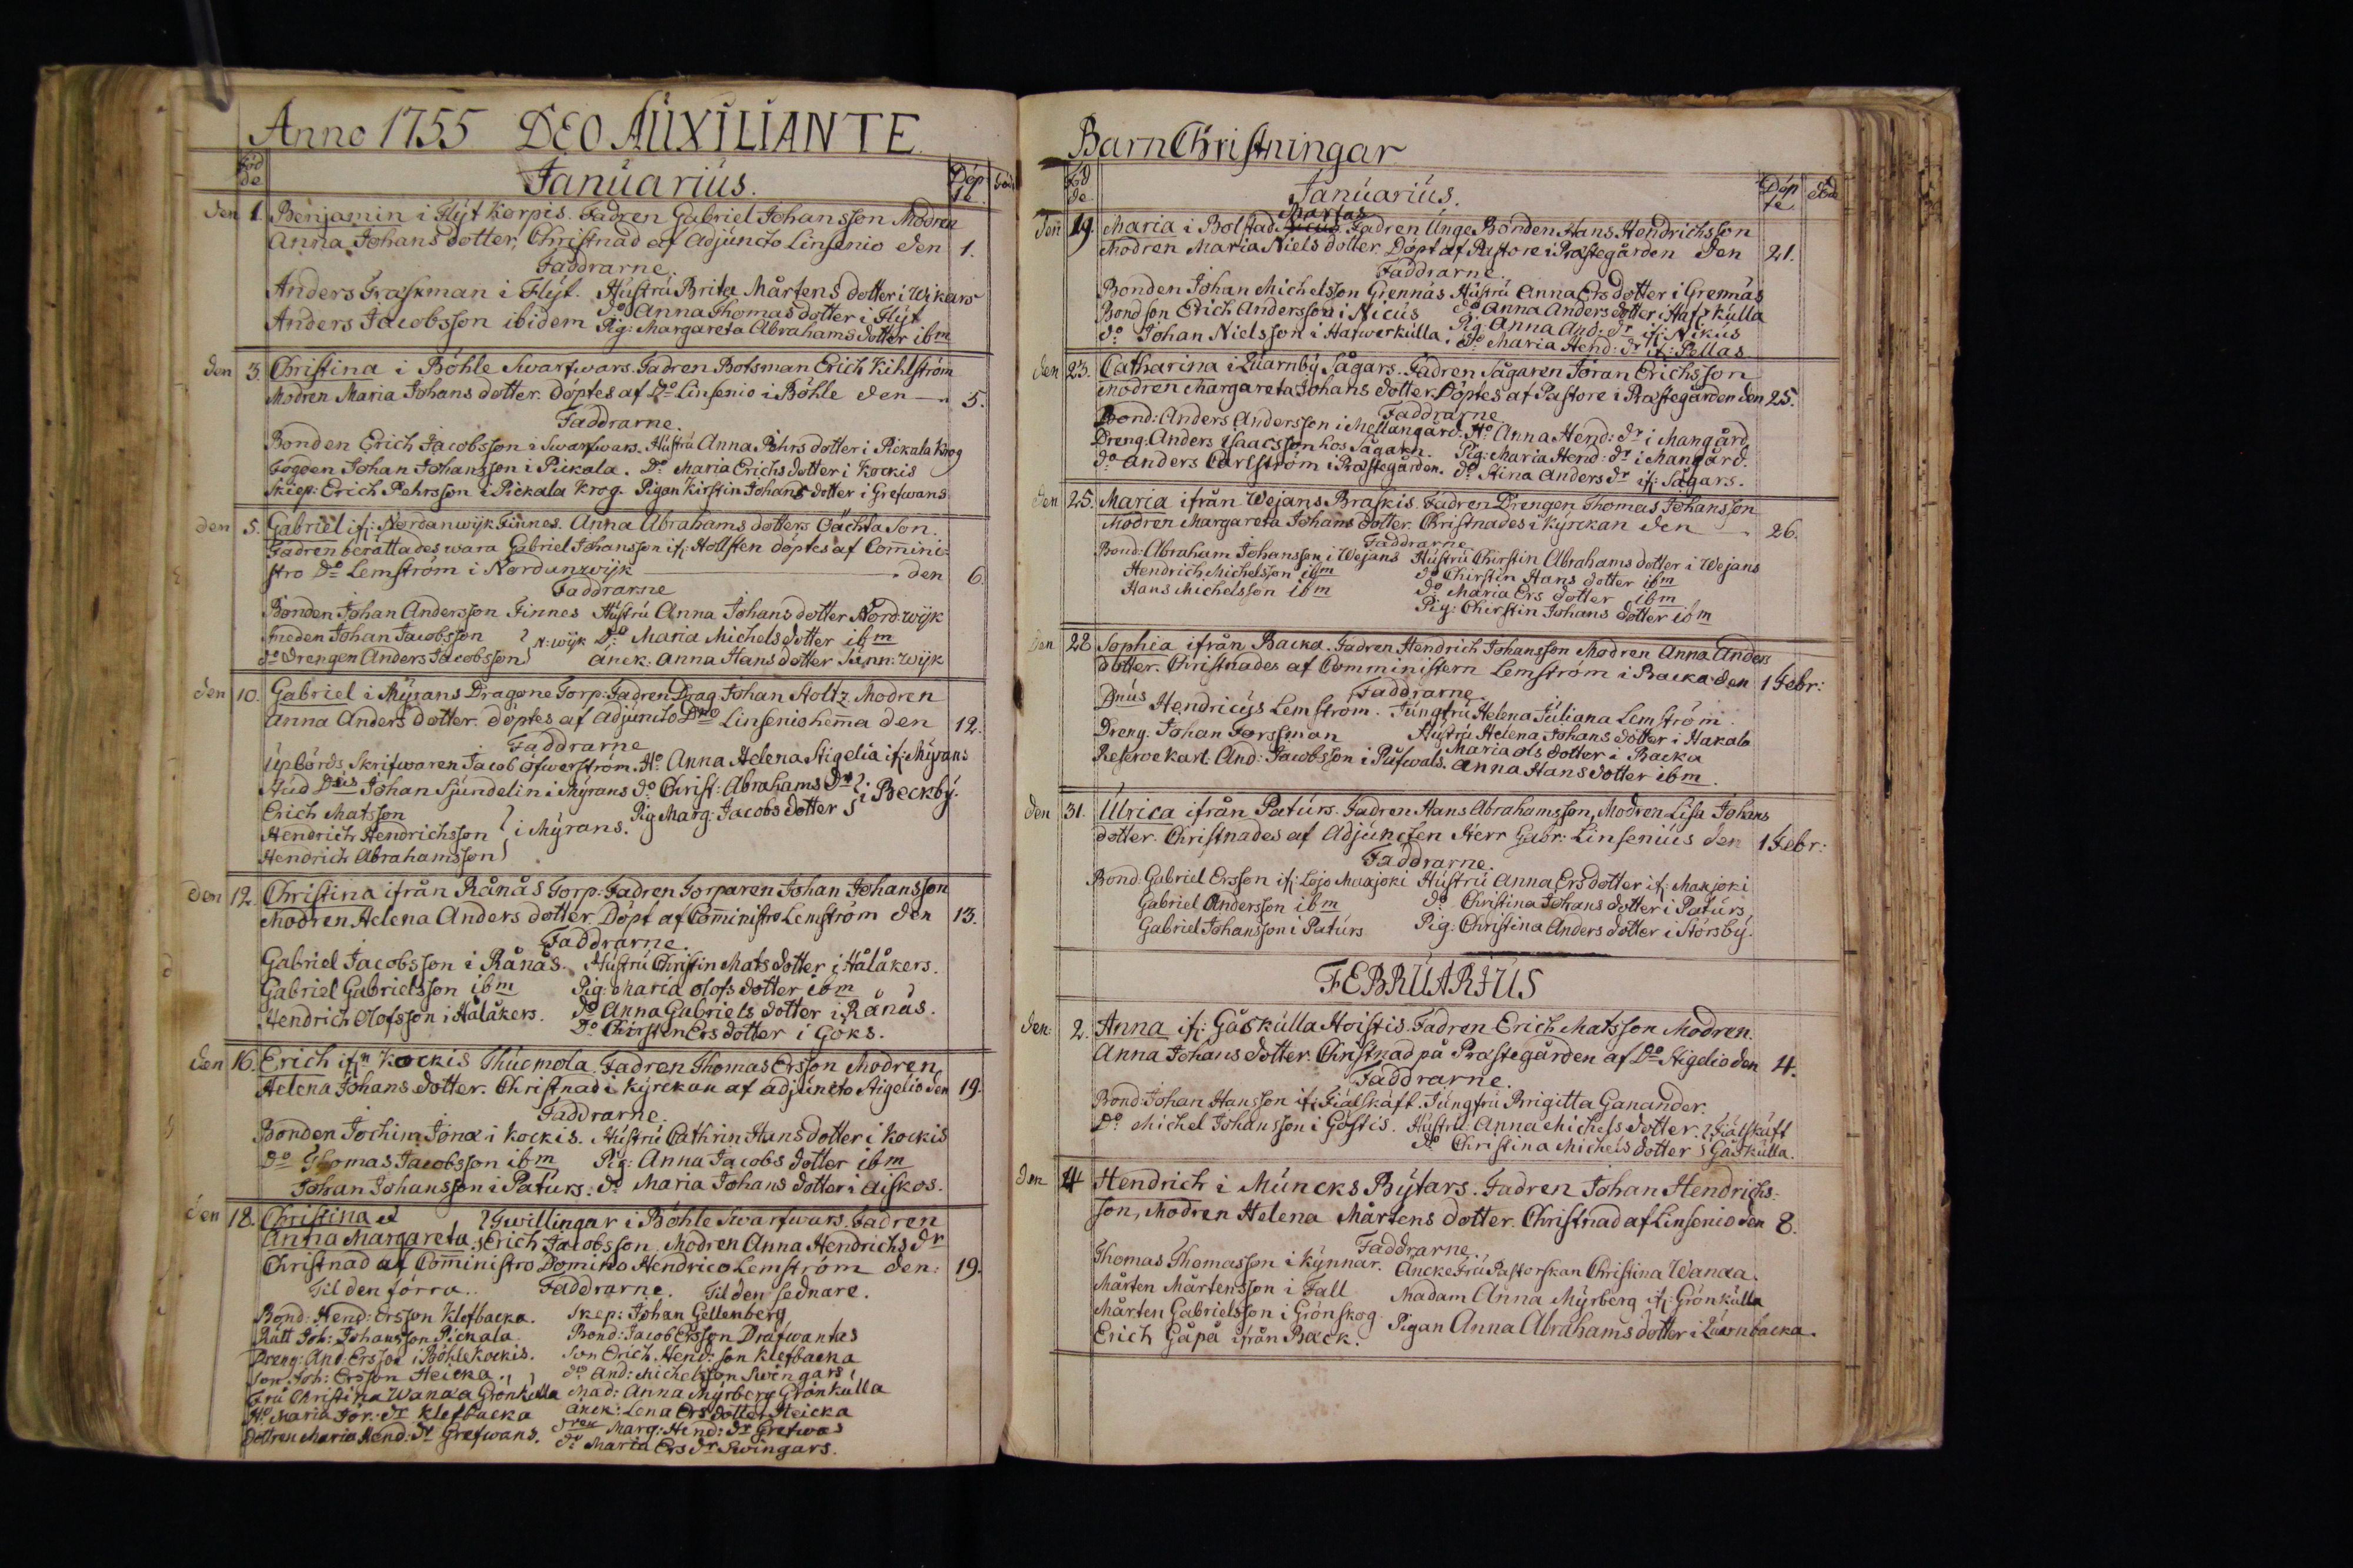 Anno 1755 DEO AUXILIANTE
Föd de Januarius. Döp te.
den 1. Benjamin i Flyt Korpis. Fadren Gabriel Johansson Modren
Anna Johans dotter, Christnad af Adjuncto Linsenio den 1.
Faddrarne.
Anders Fraskman i Flyt. Hustru Brita Mårtens dotter i Wikars
Anders Jacobsson ibidem do Anna Thomas dotter i Flyt
Pig: Margareta Abrahams dotter ibm
den 3. Christina i Böhle Swartwars. Fadren Botsman Erich Kihlström
Modren Maria Johans dotter. Döptes af Do Linsenio i Böhle den 5.
Faddrarne.
Bonden Erich Jacobsson i Swartwars. Hustru Anna Pöhrs dotter i Pickala Krog
Fogden Johan Johansson i Pickala. Do Maria Erichs dotter i Kockis
Skiep: Erich Pehrsson i Pickala Krog. Pigan Kirstin Johans dotter i Grefwans
den 5. Gabriel if: Nordanwijk Finnes. Anna Abrahams dotters Oächta Son.
Fadren berättades wara Gabriel Johansson if: Hollsten döptes af Commini=
stro Do Lemström i Nordanwijk den 6.
Faddrarne
Bonden Johan Andersson Finnes Hustru Anna Johans dotter Nord: wijk
Smeden Johan Jacobsson N: wijk Do Maria Michels dotter ibm
do Drengen Anders Jacobsson Anck: Anna Hans dotter Sunn: wijk
den 10. Gabriel i Myrans Dragone Torp: Fadren Drag. Johan Stoltz. Modren
Anna Anders dotter. döptes af Adjuncto Dno Linsenio hema den 12.
Faddrarne
Upbörds Skrifwaren Jacob Öfwerström. Ho Anna Helena Stigelia if: Myrans
Stud Dnus Johan Sjundelin i Myrans do Christ: Abrahams Dr i Beckby.
Erich Matsson Pig Marg: Jacobs dotter
Hendrich Hendrichsson i Myrans.
Hendrich Abrahamsson
den 12. Christina ifrån Rånås Torp. Fadren Torparen Johan Johansson
Modren Helena Anders dotter. Döpt af Coministro Lemström den 13.
Faddrarne.
Gabriel Jacobsson i Rånås. Hustru Christin Mats dotter i Hålåkers.
Gabriel Gabrielsson ibm Pig: Maria Olofs dotter ibm
Hendrich Olofsson i Hålåkers. do Anna Gabriels dotter i Rånås.
Do Chirsten Ers dotter i Göks.
den 16. Erich ifn Kockis Thucmola. Fadren Thomas Ersson Modren
Helena Johans dotter. Christnad i Kyrckan af adjuncto Stigelio den 19.
Faddrarne.
Bonden Jochim Jona i Kockis. Hustru Cathrin Hans dotter i Kockis
Do Thomas Jacobsson ibm Pig: Anna Jacobs dotter ibm
Johan Johansson i Paturs. do Maria Johans dotter i Aiskos.
den 18. Christina et Twillingar i Böhle Swartwars. Fadren
Anna Margareta Erich Jacobsson. Modren Anna Hendrichs Dr
Christnad af Coministro Domino Hendrico Lemström den: 19.
Til den förra. Faddrarne. Til den sednare.
Bond: Hend: Ersson Klefbacka. Skep: Johan Gellenberg
Rätt Joh: Johansson Pickala Bond: Jacob Ersson Drafwantas
Dreng: And Ersson i Böhle Kockis. Son Erich Hend: son Klefbacka
Son Joh: Ersson Steicka. do And: Michelsson Swingars
Fru Christina Wanaa Grönkulla Mad: Anna Myrberg Grönkulla
Ho Maria Jör: dr Klefbacka Anck: Lena Ers dotter Steicka
Dottren Maria Hend: dr Grefwans. dren Marg: Hend: dr Grefwas
do Maria Ers dr Swingars.
Barn Christningar
Föd de Januarius. Döp te. död
den 19 Maria i Bolstad Martas Fadren Unge Bonden Hans Hendrichsson
Modren Maria Niels dotter. Döpt af Pastore i Prästegården den 21.
Faddrarne.
Bonden Johan Michelsson Grennäs Hustru Anna Ers dotter i Grennäs
Bondson Erich Andersson i Nicus do Anna Anders dotter i Hafz kulla
do Johan Nielsson i Hafwerkulla. Pig: Anna And: dr if: Nikus
do Maria Hend: dr if: Pellas
den 23. Catharina i Quarnby Sågars. Fadren Sågaren Jöran Erichsson
Modren Margareta Johans dotter. Döptes af Pastore i Prästegården den 25.
Faddrarne
Bond: Anders Andersson i Mellangård. Ho Anna Hend: dr i Mangård
Dreng: Anders Isaacsson hos Sågarn. Pig: Maria Hend: dr i Mangård.
do Anders Carlström i Prästegården. do Stina Anders dr if: Sågars.
den 25. Maria ifrån Wejans Braskis. Fadren Drengen Thomas Johansson
Modren Margareta Johans dotter. Christnades i Kyrckan den 26.
Faddrarne
Bond: Abraham Johansson i Wejans Hustru Chirstin Abrahams dotter i Wejans
Hendrich Michelsson ibm do Chirstin Hans dotter ibm
Hans Michelsson ibm do Maria Ers dotter ibm
Pig: Chirstin Johans dotter ibm
den 28 Sophia ifrån Backa. Fadren Hendrich Johansson Modren Anna Anders
dotter. Christnades af Comministern Lemström i Backa den 1 Febr:
Faddrarne.
Dnus Hendricus Lemström. Jungfru Helena Juliana Lemström.
Dreng. Johan Forssman Hustru Helena Johans dotter i Hakala
Maria Ols dotter i Backa
Reservekarl: And: Jacobsson i Pufwals. Anna Hans dotter ibm.
den 31. Ulrica ifrån Paturs. Fadren Hans Abrahamsson, Modren Lisa Johans
dotter. Christnades af Adjuncten Herr Gabr: Linsenius den 1 Febr:
Faddrarne.
Bond. Gabriel Ersson if: Lojo Maxjoki Hustru Anna Ers dotter if: Maxjoki
Gabriel Andersson ibm do Christina Johans dotter i Paturs,
Gabriel Johansson i Paturs Pig: Christina Anders dotter i Störsby.
FEBRUARIUS
den 2. Anna if: Gåskulla Hoistis. Fadren Erich Matsson Modren.
Anna Johans dotter. Christnad på Prästegården af Do Stigelio den 4.
Faddrarne.
Bond Johan Hansson if: Fiälskäft. Jungfru Brigitta Ganander.
Do Michel Johansson i Göstis. Hustru: Anna Michels dotter. Fiälskäft
do Christina Michels dotter Gåskulla.
den 4 Hendrich i Muncks Bytars. Fadren Johan Hendrichs=
son, Modren Helena Mårtens dotter. Christnad af Linsenio den 8.
Faddrarne.
Thomas Thomasson i Kynnar. Ancke Fru Pastorskan Christina Wanaa.
Mårten Mårtensson i Fall Madam Anna Myrberg if: Grönkulla
Mårten Gabrielsson i Grönskog Pigan Anna Abrahams dotter i Quarnbacka.
Erich Gåpå ifrån Back.